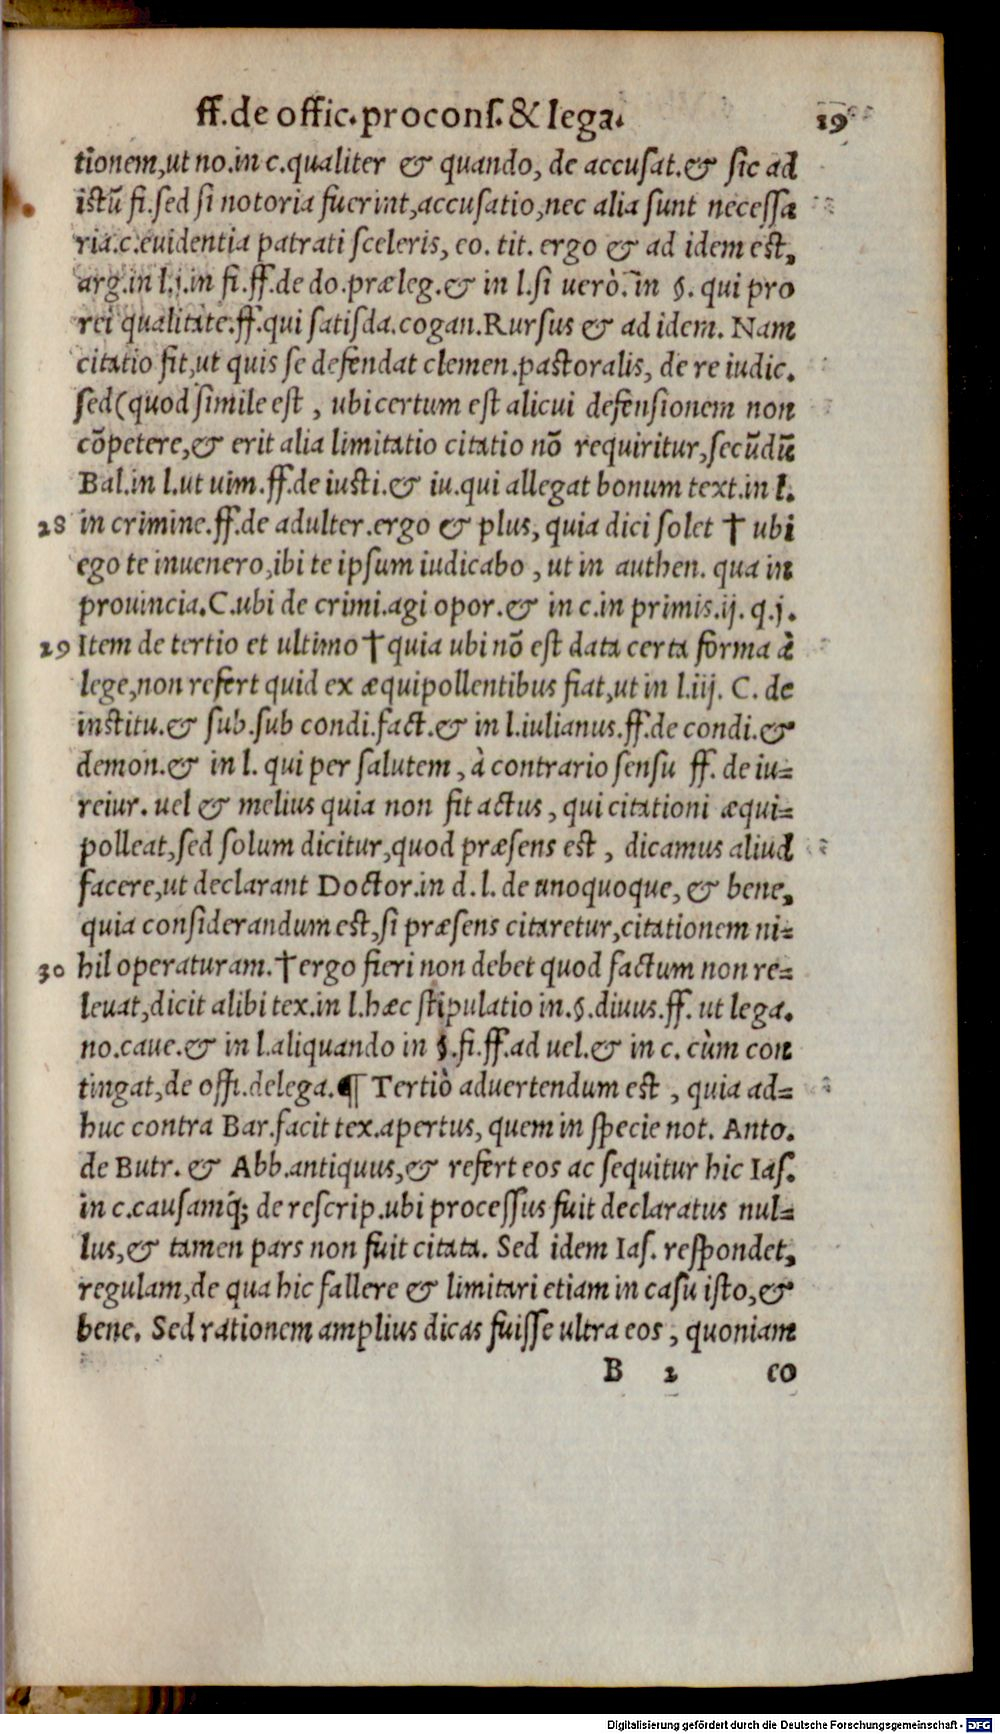 ff.de offic.procons.& lega. 19
tionem,ut no.in c.qualiter & quando, de accusat.& sic ad
istū fi.sed si notoria fuerint,accusatio,nec alia sunt necessa
ria.c.euidentia patrati sceleris, eo. tit. ergo & ad idem est,
arg.in l.j.in fi.ff.de do.præleg.& in l.si uerò.in §. qui pro
rei qualitate.ff.qui satisda.cogan.Rursus & ad idem. Nam
citatio fit,ut quis se defendat clemen.pastoralis, de re iudic.
sed(quod simile est , ubi certum est alicui defensionem non
cōpetere,& erit alia limitatio citatio nō requiritur,secūdū
Bal.in l.ut uim.ff.de iusti.& iu.qui allegat bonum text.in l.
28 in crimine.ff.de adulter.ergo & plus, quia dici solet † ubi
ego te inuenero,ibi te ipsum iudicabo , ut in authen. qua in
prouincia.C.ubi de crimi.agi opor.& in c.in primis.ij. q.j.
29 Item de tertio et ultimo † quia ubi nō est data certa forma à
lege,non refert quid ex æquipollentibus fiat,ut in l.iij. C. de
institu.& sub.sub condi.fact.& in l.iulianus.ff.de condi.&
demon.& in l. qui per salutem , à contrario sensu ff. de iu=
reiur. uel & melius quia non fit actus , qui citationi æqui=
polleat,sed solum dicitur,quod præsens est , dicamus aliud
facere,ut declarant Doctor.in d. l. de unoquoque, & bene,
quia considerandum est,si præsens citaretur,citationem ni=
30 hil operaturam.† ergo fieri non debet quod factum non re=
leuat,dicit alibi tex.in l.hæc stipulatio in.§.diuus.ff. ut lega.
no.caue.& in l.aliquando in §.fi.ff.ad uel.& in c. cùm con
tingat,de offi.delega.¶ Tertiò aduertendum est , quia ad=
huc contra Bar.facit tex.apertus, quem in specie not. Anto.
de Butr. & Abb.antiquus,& refert eos ac sequitur hic Ias.
in c.causamq́; de rescrip.ubi processus fuit declaratus nul=
lus,& tamen pars non fuit citata. Sed idem Ias. respondet,
regulam,de qua hic fallere & limitari etiam in casu isto,&
bene. Sed rationem amplius dicas fuisse ultra eos , quoniam
B 2 co
Digitalisierung gefördert durch die Deutsche Forschungsgemeinschaft - DFG